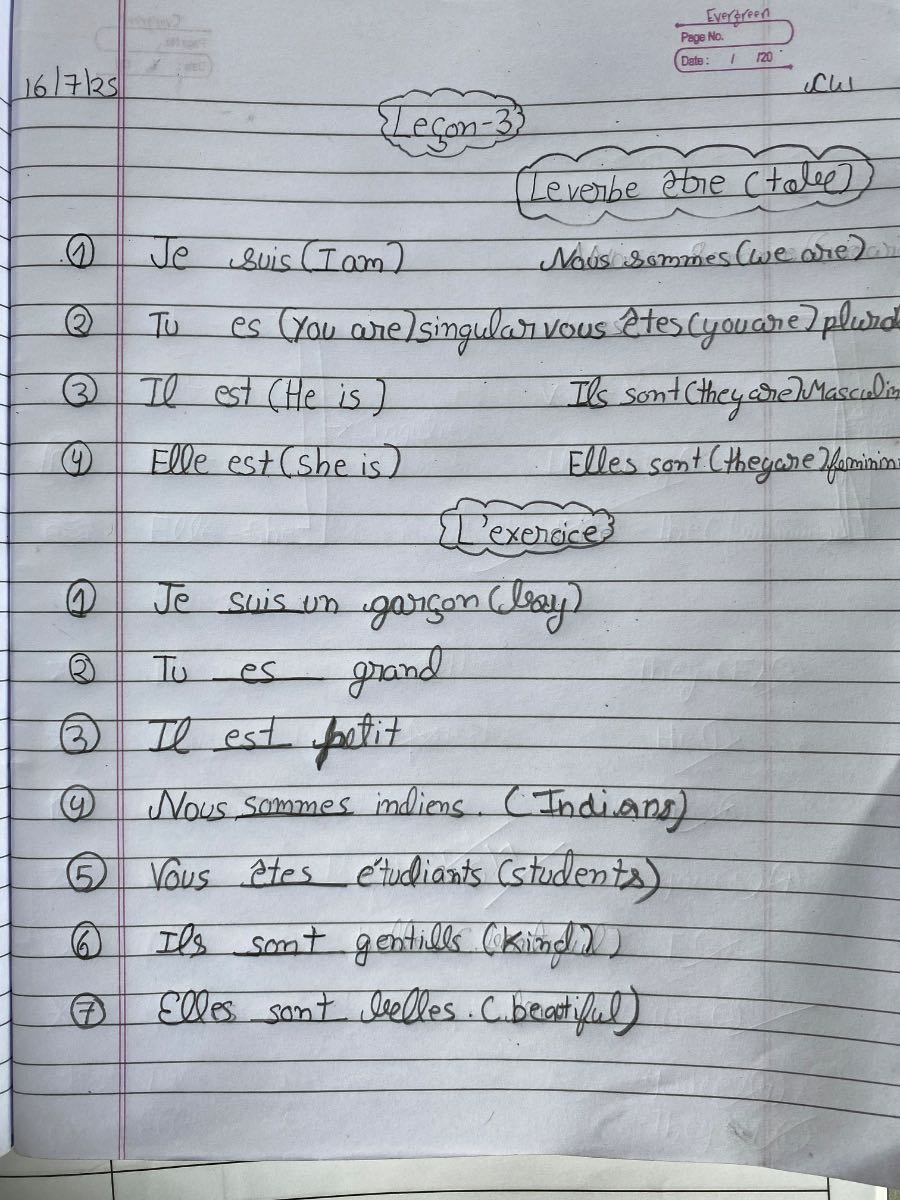 Evergreen
Page No.
Date: / /20
16/7/25 CW
Leçon-3
Le verbe être (to be)
① Je suis (I am) Nous sommes (we are)
② Tu es (You are) singular vous êtes (you are) plural
③ Il est (He is) Ils sont (they are) Masculin
④ Elle est (she is) Elles sont (they are) feminin
L'exercice
① Je suis un garçon (boy)
② Tu es grand
③ Il est petit
④ Nous sommes indiens. (Indians)
⑤ Vous êtes étudiants (students)
⑥ Ils sont gentills (Kind)
⑦ Elles sont belles. (beautiful)